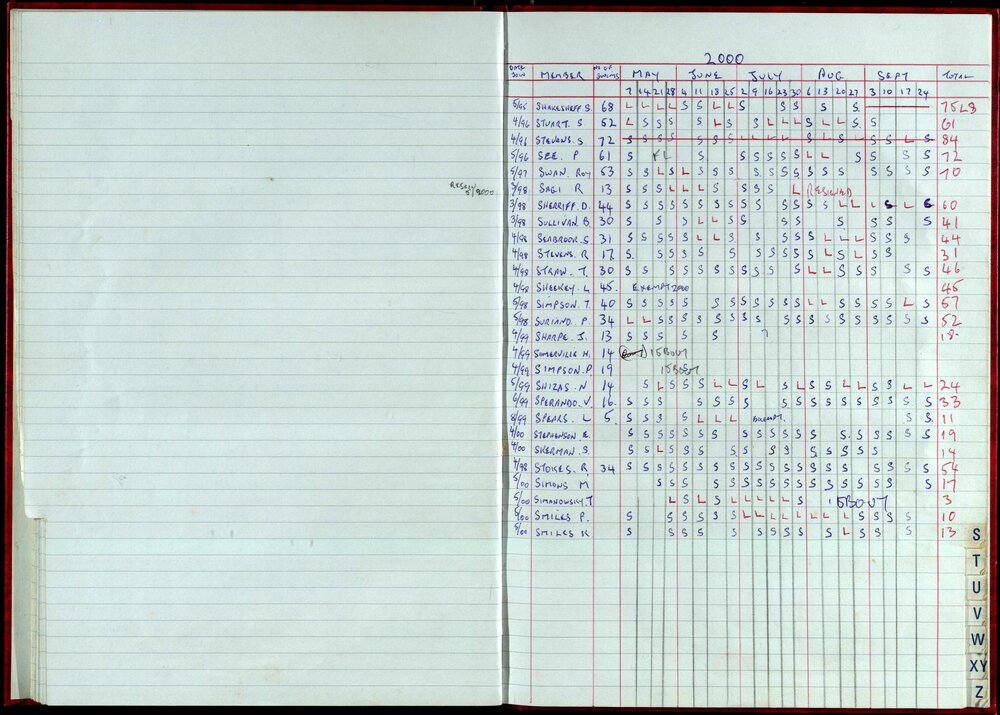 2000
DATE JOIN MEMBER NO OF SWIMS MAY JUNE JULY AUG SEPT TOTAL
7 14 21 28 4 11 18 25 2 9 16 23 30 6 13 20 27 3 10 17 24
5/95 SHAKESHEFF. S. 68 L L L L S S L L S S S S S 75 L8
4/96 STUART. S. 52 L S S S S L S S L L L S L L S S 61
4/96 STEVENS. S. 72 84
5/96 SEE. P 61 S L S S S S S S L L S S S S 72
5/97 SWAN. ROY 53 S S L S L S S S S S S S S S S S S S S S 70
RESIGN 3/98 SAGI R 13 S S L L L S S S S L RESIGNED
3/98 SHERRIFF. D. 44 60
3/98 SULLIVAN. B. 30 S S S L L S S S S S S S 41
4/98 SEABROOK. S 31 S S S S S L L S S S S S L L L S S S 44
4/98 STEVENS. R 17 31
4/98 STRAW. T. 30 46
4/98 SHEEKEY. L 45. EXEMPT 2000 45
5/98 SIMPSON. T 40 S S S S S S S S S S S S S L L S S S S L S 57
5/98 SURIANO. P. 34 L L S S S S S S S S S S S S S S S S S S 52
4/99 SHARPE. J. 13 S S S S S 18
4/99 SOMERVILLE H. 14 15 BOUT
4/99 SIMPSON. P. 19 15 BOUT
5/99 SHIZAS. N 14 S L S S S L L S L S L S S L L S S L L 24
6/99 SPERANDO. V. 16. S S S S S S S S S S S S S S S S S S 33
8/99 SPEARS. L 5. S S S S L L L S S 11
4/00 STEPHENSON E. S S S S S S S S S S S S S S S S S S S 19
4/00 SKERMAN. S. 14
4/98 STOKES. R 34 54
5/00 SIMONS M 17
5/00 SIMANOWSKY. T L S L S L L L L L S 15 BOUT 3
5/00 SMILES P. 10
5/00 SMILES K S S S S S S S S S L S S S 13
S
T
U
V
W
XY
Z